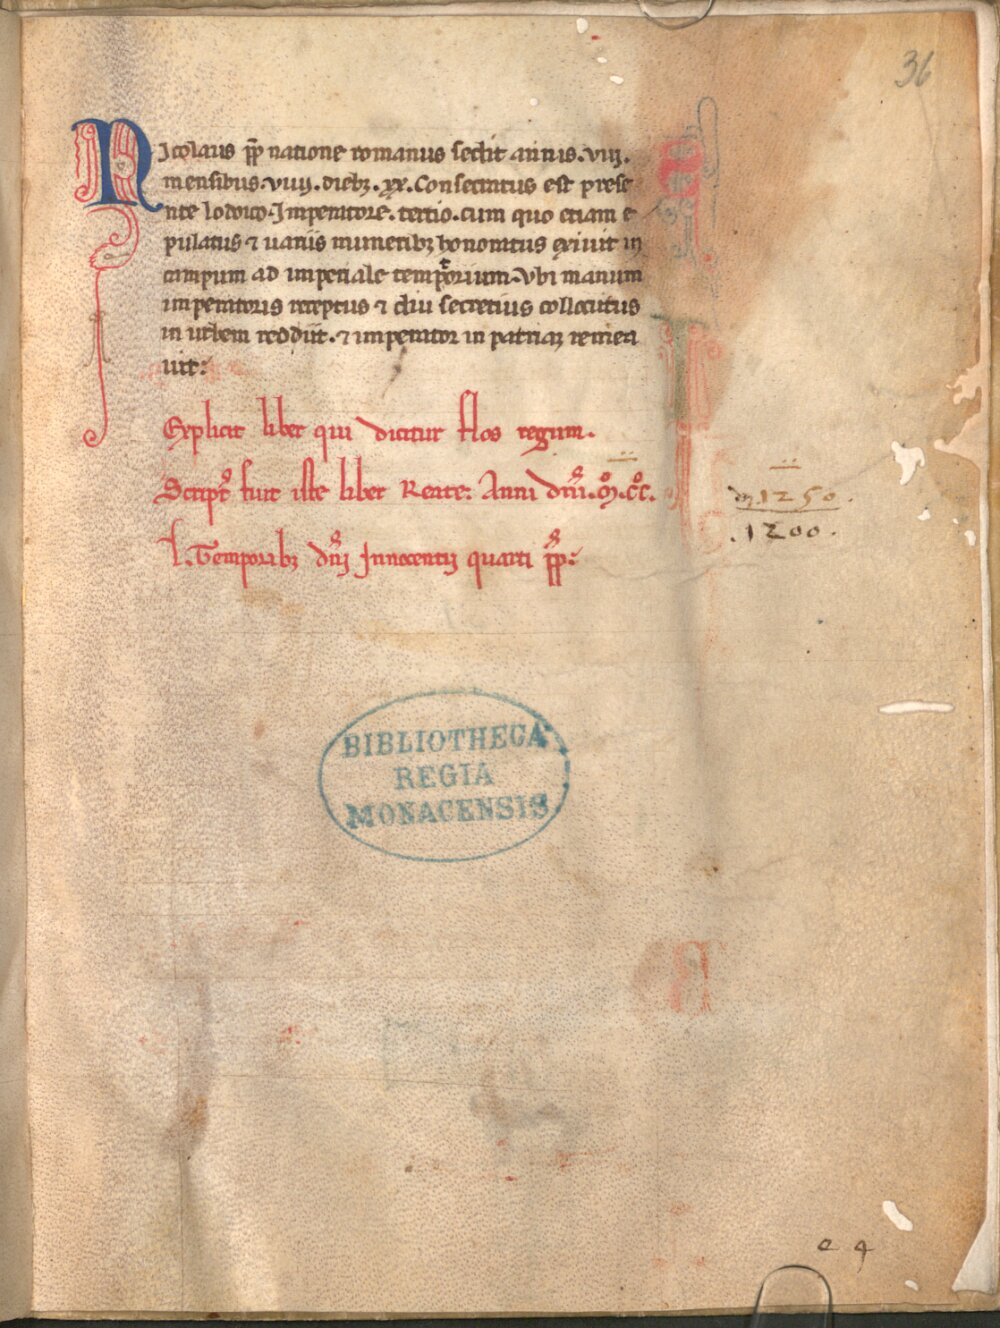 36
Nicolaus pp̄ natione romanus sedit annis .viij.
mensibus .viiij. dieb; .xx. Consecratus est prese
nte lodoico Imperatore. tertio. cum quo etiam e
pulatus ⁊ uariis munerib; honoratus exiuit in
campum ad imperiale temptorium. Vbi manum
imperatoris receptus ⁊ diu secretius collocutus
in urbem reddiit. ⁊ imperator in patriaꝫ remea
uit:
Explicit liber qui dicitur flos regum.
Script᷒ fuit iste liber Reate: Anni dñi. M̊. CC̊.
L. Temporib; dñi Innocentij quarti pp̄:
m.1250.
.1200.
BIBLIOTHECA
REGIA
MONACENSIS
e 4